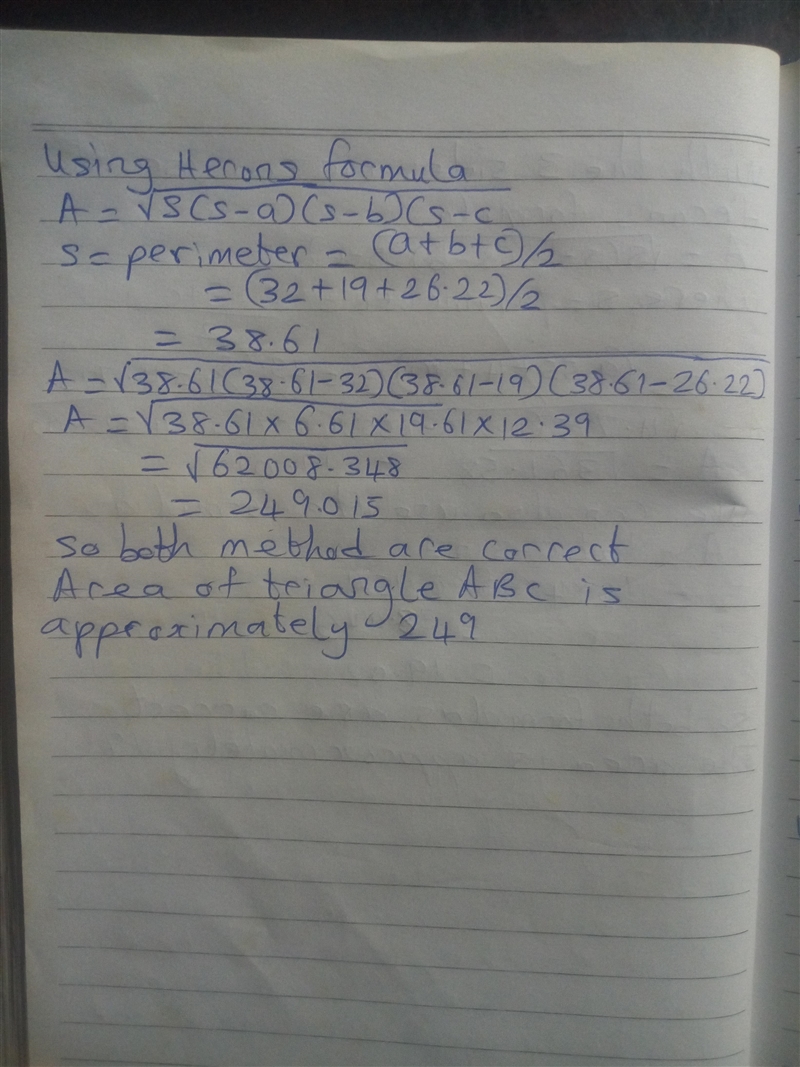 Using Herons formula
A = √S(s-a)(s-b)(s-c
S = perimeter = (a+b+c)/2
= (32+19+26.22)/2
= 38.61
A = √38.61(38.61-32)(38.61-19)(38.61-26.22)
A = √38.61×6.61×19.61×12.39
= √62008.348
= 249.015
So both method are correct
Area of triangle ABC is
approximately 249